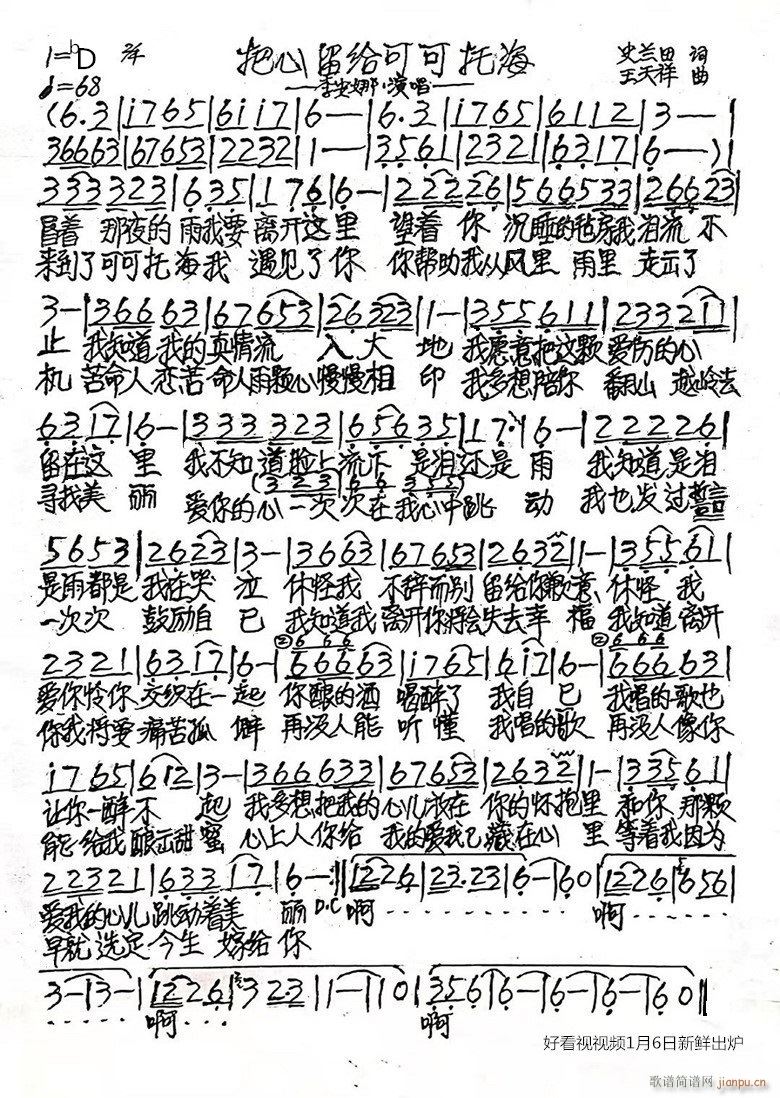 1=bD 2/4 把心留给可可托海 史兰田 词
♩=68 —李安娜·演唱— 王天祥 曲
(6.3|i765|6i17|6—|6.3|i765|6112|3——|
36663|67653|2232|1—|3561|2321|6317|6—)|
333323|635|176|6—|22226|566533|26623|
冒着 那夜的 雨我要 离开这里 望着 你 沉睡的毡房我泪流 不
来到了可可托海我 遇见了你 你帮助我从风里 雨里 走出了
3—|36663|67653|26323|1—|355611|233211|
止 我知道我的真情流 入大 地 我愿意把这颗 爱伤的心
机 苦命人恋苦命人两颗心慢慢相 印 我多想陪你 翻山 越岭去
6317|6—|333323|65635|17·|6—|22226|
留在这 里 我不知道脸上流下 是泪还是雨 我知道是泪
(3 323 | 66 355)
寻找美 丽 爱你的心一次次在我心中跳 动 我也发过誓言
5653|2623|3—|3663|67653|2632|1—|35561|
是雨都是 我在哭 泣 休怪我 不辞而别 留给你歉意 休怪 我
一次次 鼓励自 己 我知道我离开你将会失去幸 福 我知道离开
② 6 6 6 ② 6 6 6
2321|6317|6—|66663|i765|6i7|6—|66663|
爱你怜你 交织在一起 你酿的酒 喝醉了 我自 己 我唱的歌也
你我将受 痛苦孤 僻 再没人能 听懂 我唱的歌 再没人像你
i765|612|3—|366633|67653|2632|1—|33561|
让你一醉不 起 我多想把我的心儿放在 你的怀抱里 和你 那颗
能给我酿出甜蜜 心上人你给 我的爱我已藏在心 里 等着我因为
22321|63317|6—:‖1226|23·23|6—|60|1226|656|
爱我的心儿跳动着美 丽 D.C 啊 ········· 啊 ·····
早就选定今生 嫁给 你
3—|3—|1226|323|1—|10|356|6—|6—|6—|60‖
······ 啊 ···· 啊
好看视视频1月6日新鲜出炉
歌谱简谱网
jianpu.cn